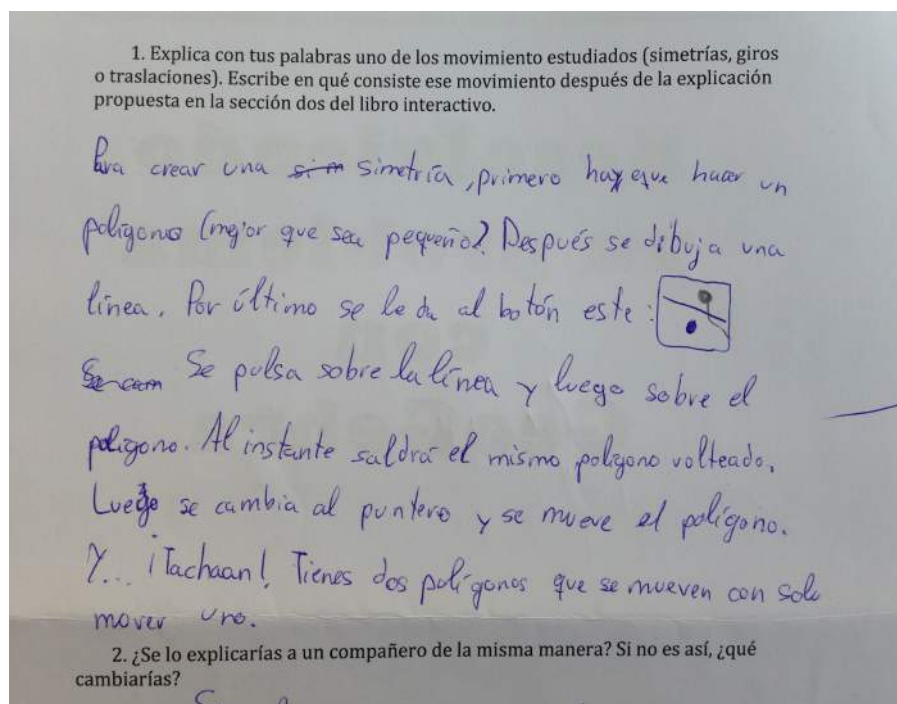 1. Explica con tus palabras uno de los movimiento estudiados (simetrías, giros
o traslaciones). Escribe en qué consiste ese movimiento después de la explicación
propuesta en la sección dos del libro interactivo.
Para crear una sim simetría, primero hay que hacer un
polígono (mejor que sea pequeño). Después se dibuja una
línea. Por último se le da al botón este:
Se pulsa sobre la línea y luego sobre el
polígono. Al instante saldrá el mismo polígono volteado.
Luego se cambia al puntero y se mueve el polígono.
Y... ¡Tachaan! Tienes dos polígonos que se mueven con solo
mover uno.
2. ¿Se lo explicarías a un compañero de la misma manera? Si no es así, ¿qué
cambiarías?